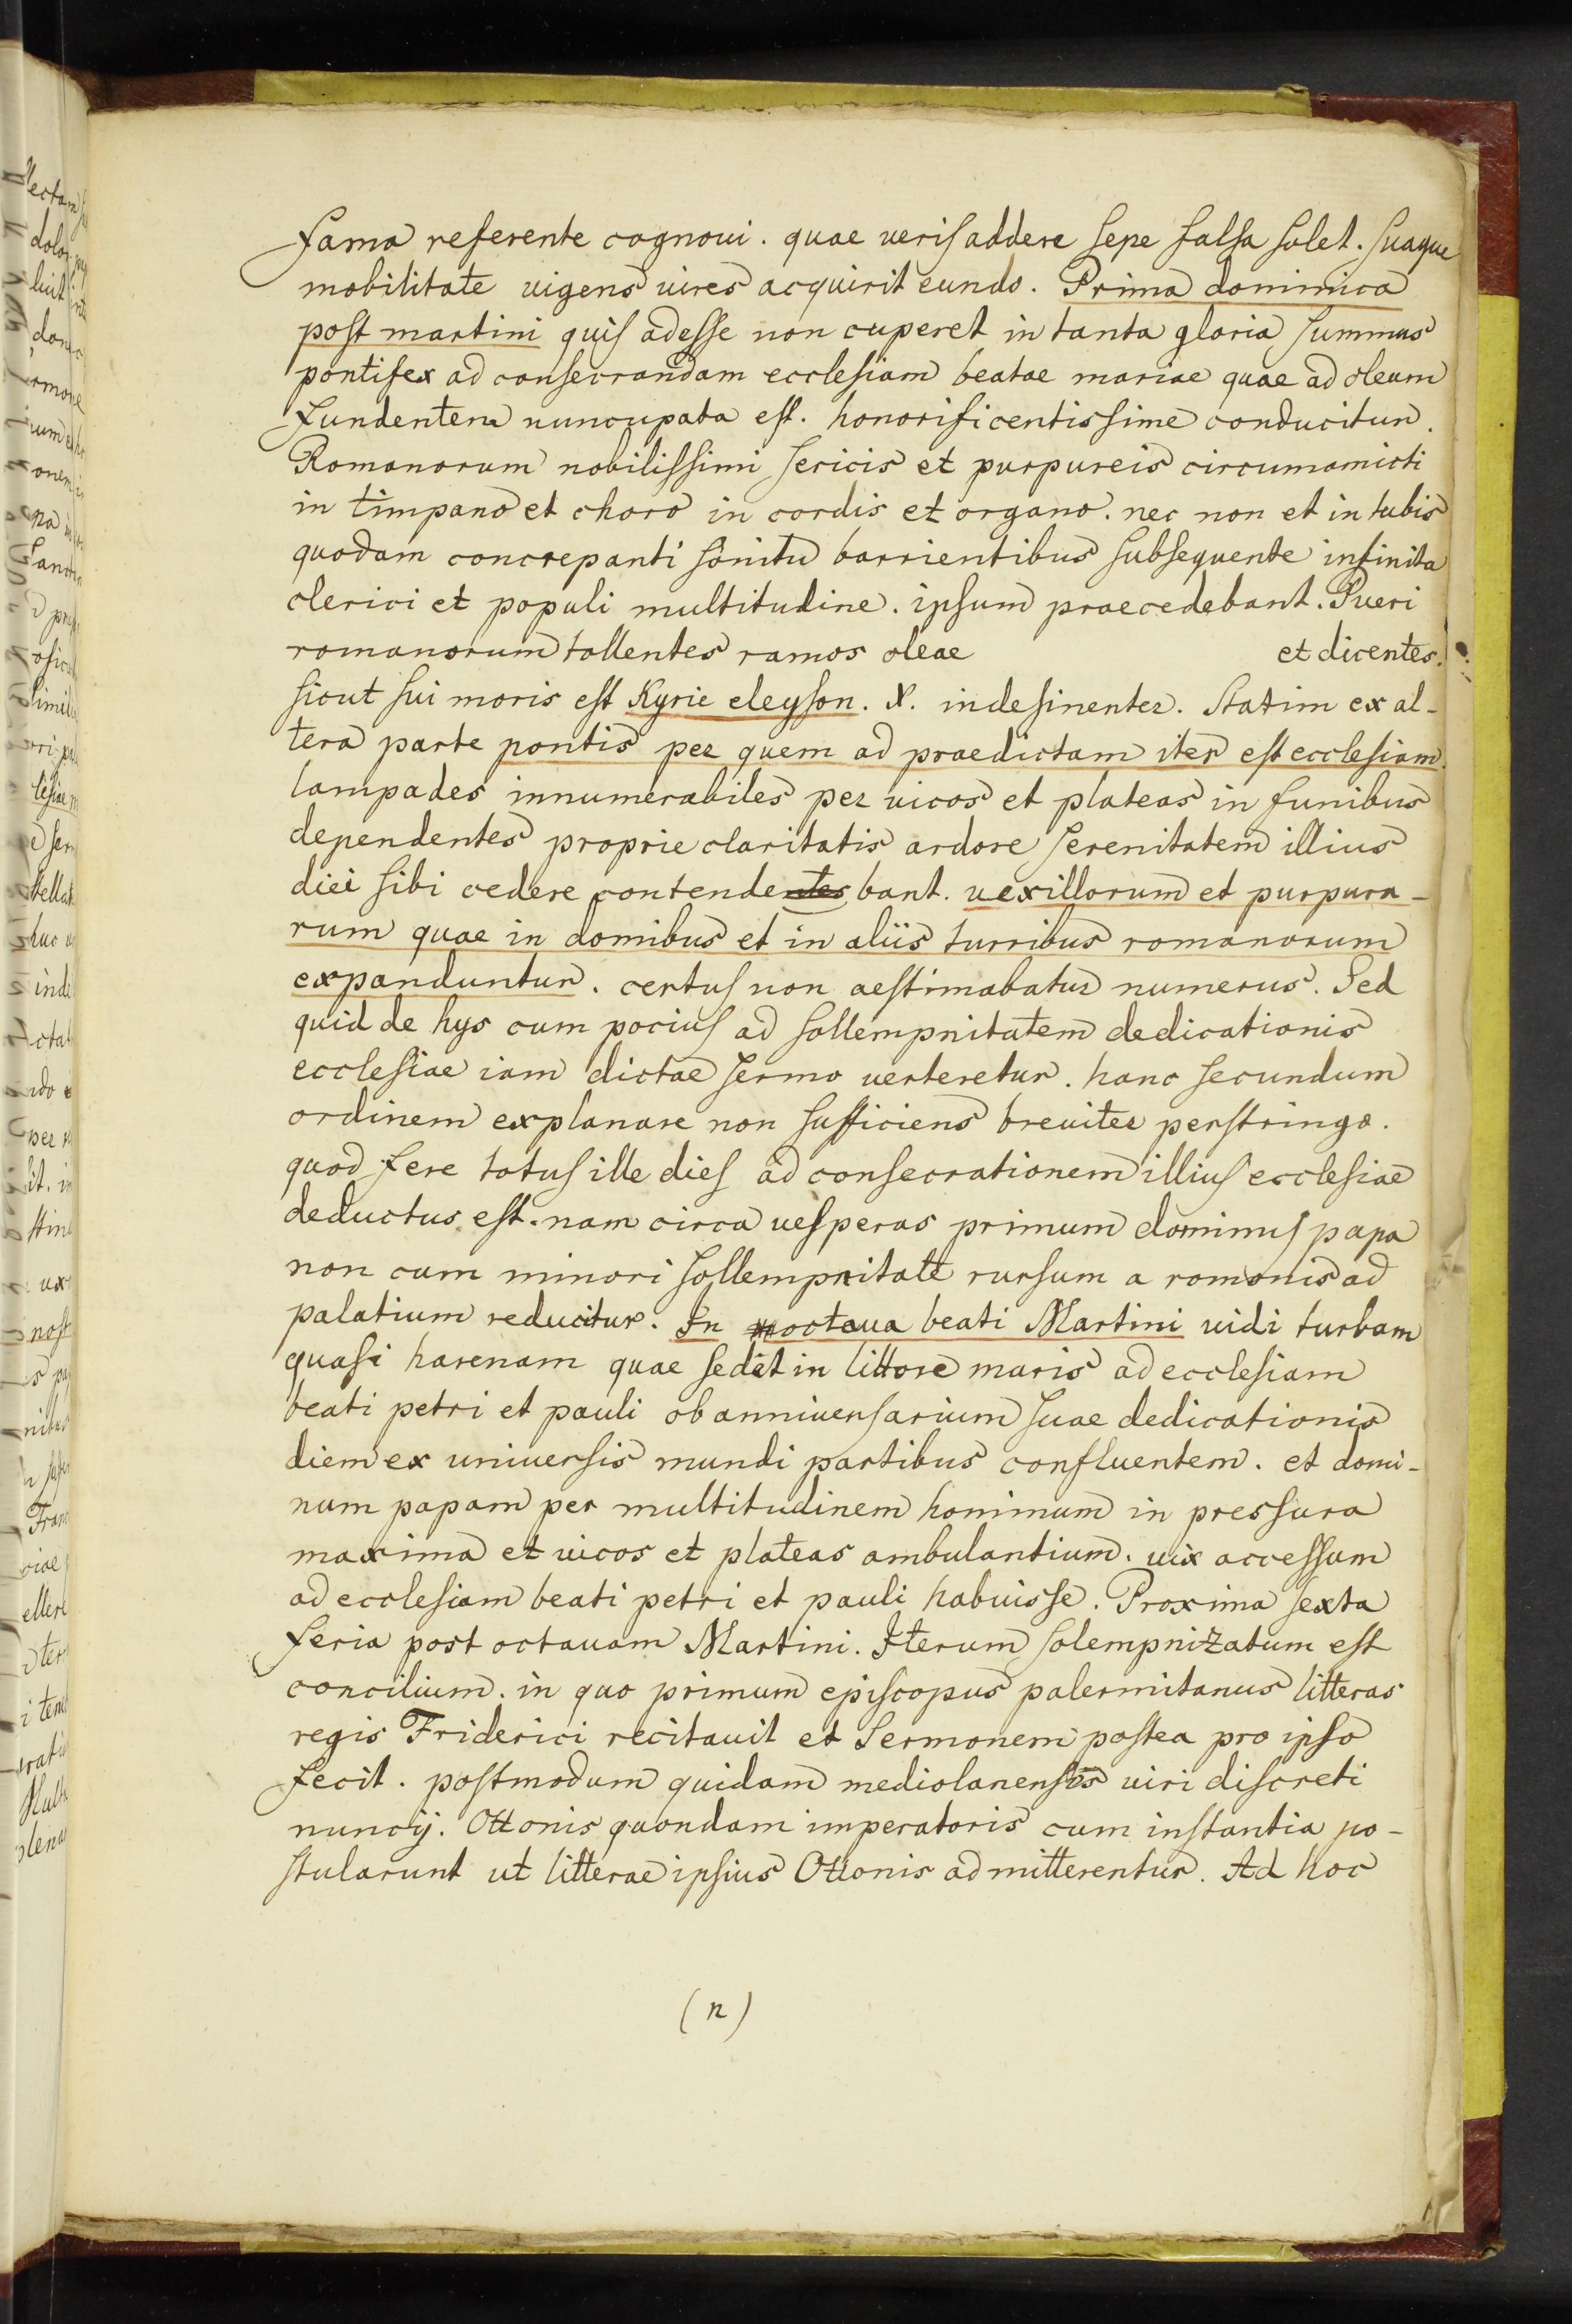 fama referente cognoui. quae uerisaddere sepe falsa solet. suaque
mobilitate uigens uires acquirit eundo. Prima dominica
post martini quis adesse non cuperet in tanta gloria summus
pontifex ad consecrandam ecclesiam beatae mariae quae ad oleum
fundentem nuncupata est. honorificentissime conducitur.
Romanorum nobilissimi sericis et purpureis circumamicti
in timpano et choro in cordis et organo. nec non et in tubis
quodam concrepanti sonitu barrientibus subsequente infinita
clerici et populi multitudine. ipsum praecedebant. Pueri
romanorum tollentes ramos oleae et dicentes.
sicut sui moris est Kyrie eleyson. X. indesinenter. Statim ex al-
tera parte pontis per quem ad praedictam iter est ecclesiam.
lampades innumerabiles per uicos et plateas in funibus
dependentes proprie claritatis ardore serenitatem illius
diei sibi cedere contendentes bant. uexillorum et purpura-
rum quae in domibus et in aliis turribus romanorum
expanduntur. certus non aestimabatur numerus. Sed
quid de hys cum pocius ad sollempnitatem dedicationis
ecclesiae iam dictae sermo uerteretur. hanc secundum
ordinem explanare non sufficiens breuiter perstringo.
quod fere totus ille dies ad consecrationem illius ecclesiae
deductus est. nam circa uesperas primum dominus papa
non cum minori sollempnitate rursum a romanis ad
palatium reducitur. In octaua beati Martini uidi turbam
quasi harenam quae sedet in littore maris ad ecclesiam
beati petri et pauli ob anniuersarium suae dedicationis
diem ex uniuersis mundi partibus confluentem. et domi-
num papam per multitudinem hominum in pressura
maxima et uicos et plateas ambulantium. uix accessum
ad ecclesiam beati petri et pauli habuisse. Proxima sexta
feria post octauam Martini. Iterum solempnizatum est
concilium. in quo primum episcopus palermitanus litteras
regis Friderici recitauit et Sermonem postea pro ipso
fecit. postmodum quidam mediolanenses uiri discreti
nuncij. Ottonis quondam imperatoris cum instantia po-
stularunt ut litterae ipsius Ottonis admitterentur. Ad hoc
(n)